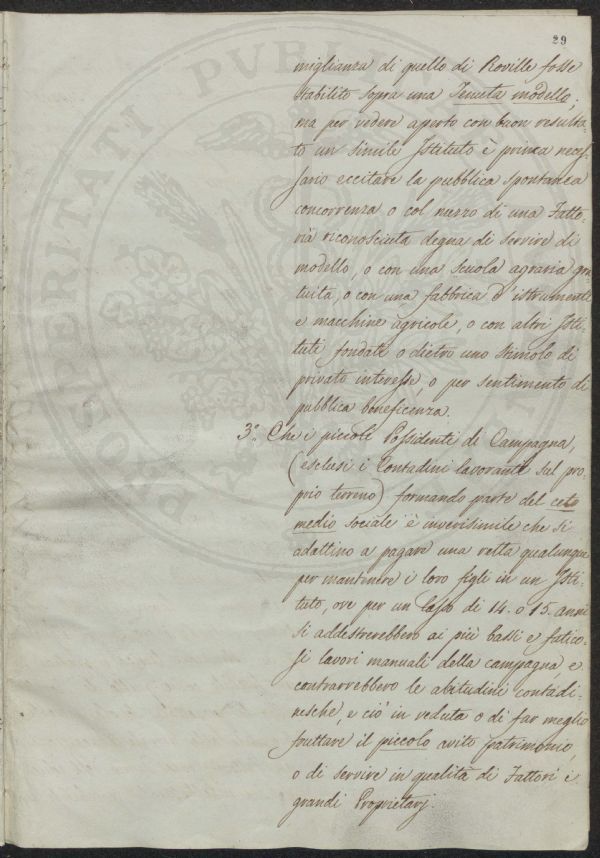 29
miglianza di quello di Roville fosse
stabilito sopra una Tenuta modello;
ma per vedere aperto con buon resulta-
to un simile Istituto è prima neces-
sario eccitare la pubblica spontanea
concorrenza o col mezzo di una Fatto-
ria riconosciuta degna di servire di
modello, o con una scuola agraria gra-
tuita, o con una fabbrica d'istrumenti
e macchine agricole, o con altri Isti-
tuti fondati o dietro uno stimolo di
privato interesse, o per sentimento di
pubblica beneficenza.
3.° Che i piccoli Possidenti di Campagna,
(esclusi i Contadini lavoranti sul pro-
prio terreno) formando parte del ceto
medio sociale è inverisimile che si
adattino a pagare una retta qualunque
per mantenere i loro figli in un Isti-
tuto, ove per un lasso di 14. o 15. anni
si addestrerebbero ai più bassi e fatico-
si lavori manuali della campagna e
contrarrebbero le abitudini contadi-
nesche, e ciò in veduta o di far meglio
fruttare il piccolo avito patrimonio,
o di servire in qualità di Fattori i
grandi Proprietarj.
PROSPERITATI PUBLICAE